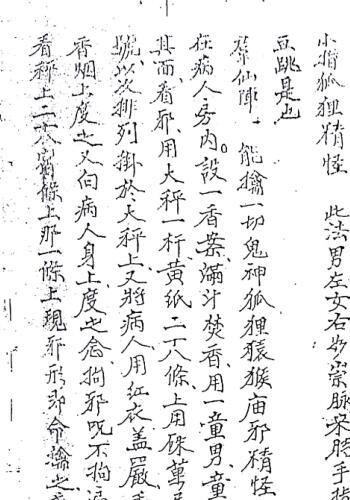 小指狐狸精怪　此法男左女右如崇脉來時手指
豆跳是也
群仙陣　能擒一切鬼神狐狸猿猴庙邪精怪
在病人房内。設一香案、滿斗焚香、用一童男童
其而、看邪、用大秤一杆、黃紙二十八條、上用硃
號、以次排列掛於大秤上、又將病人用紅衣盖嚴
香烟上度之、又向病人身上度之、念拘邪咒、不拘
看秤上二十八宿條上、那一條上現邪形、即命擒之